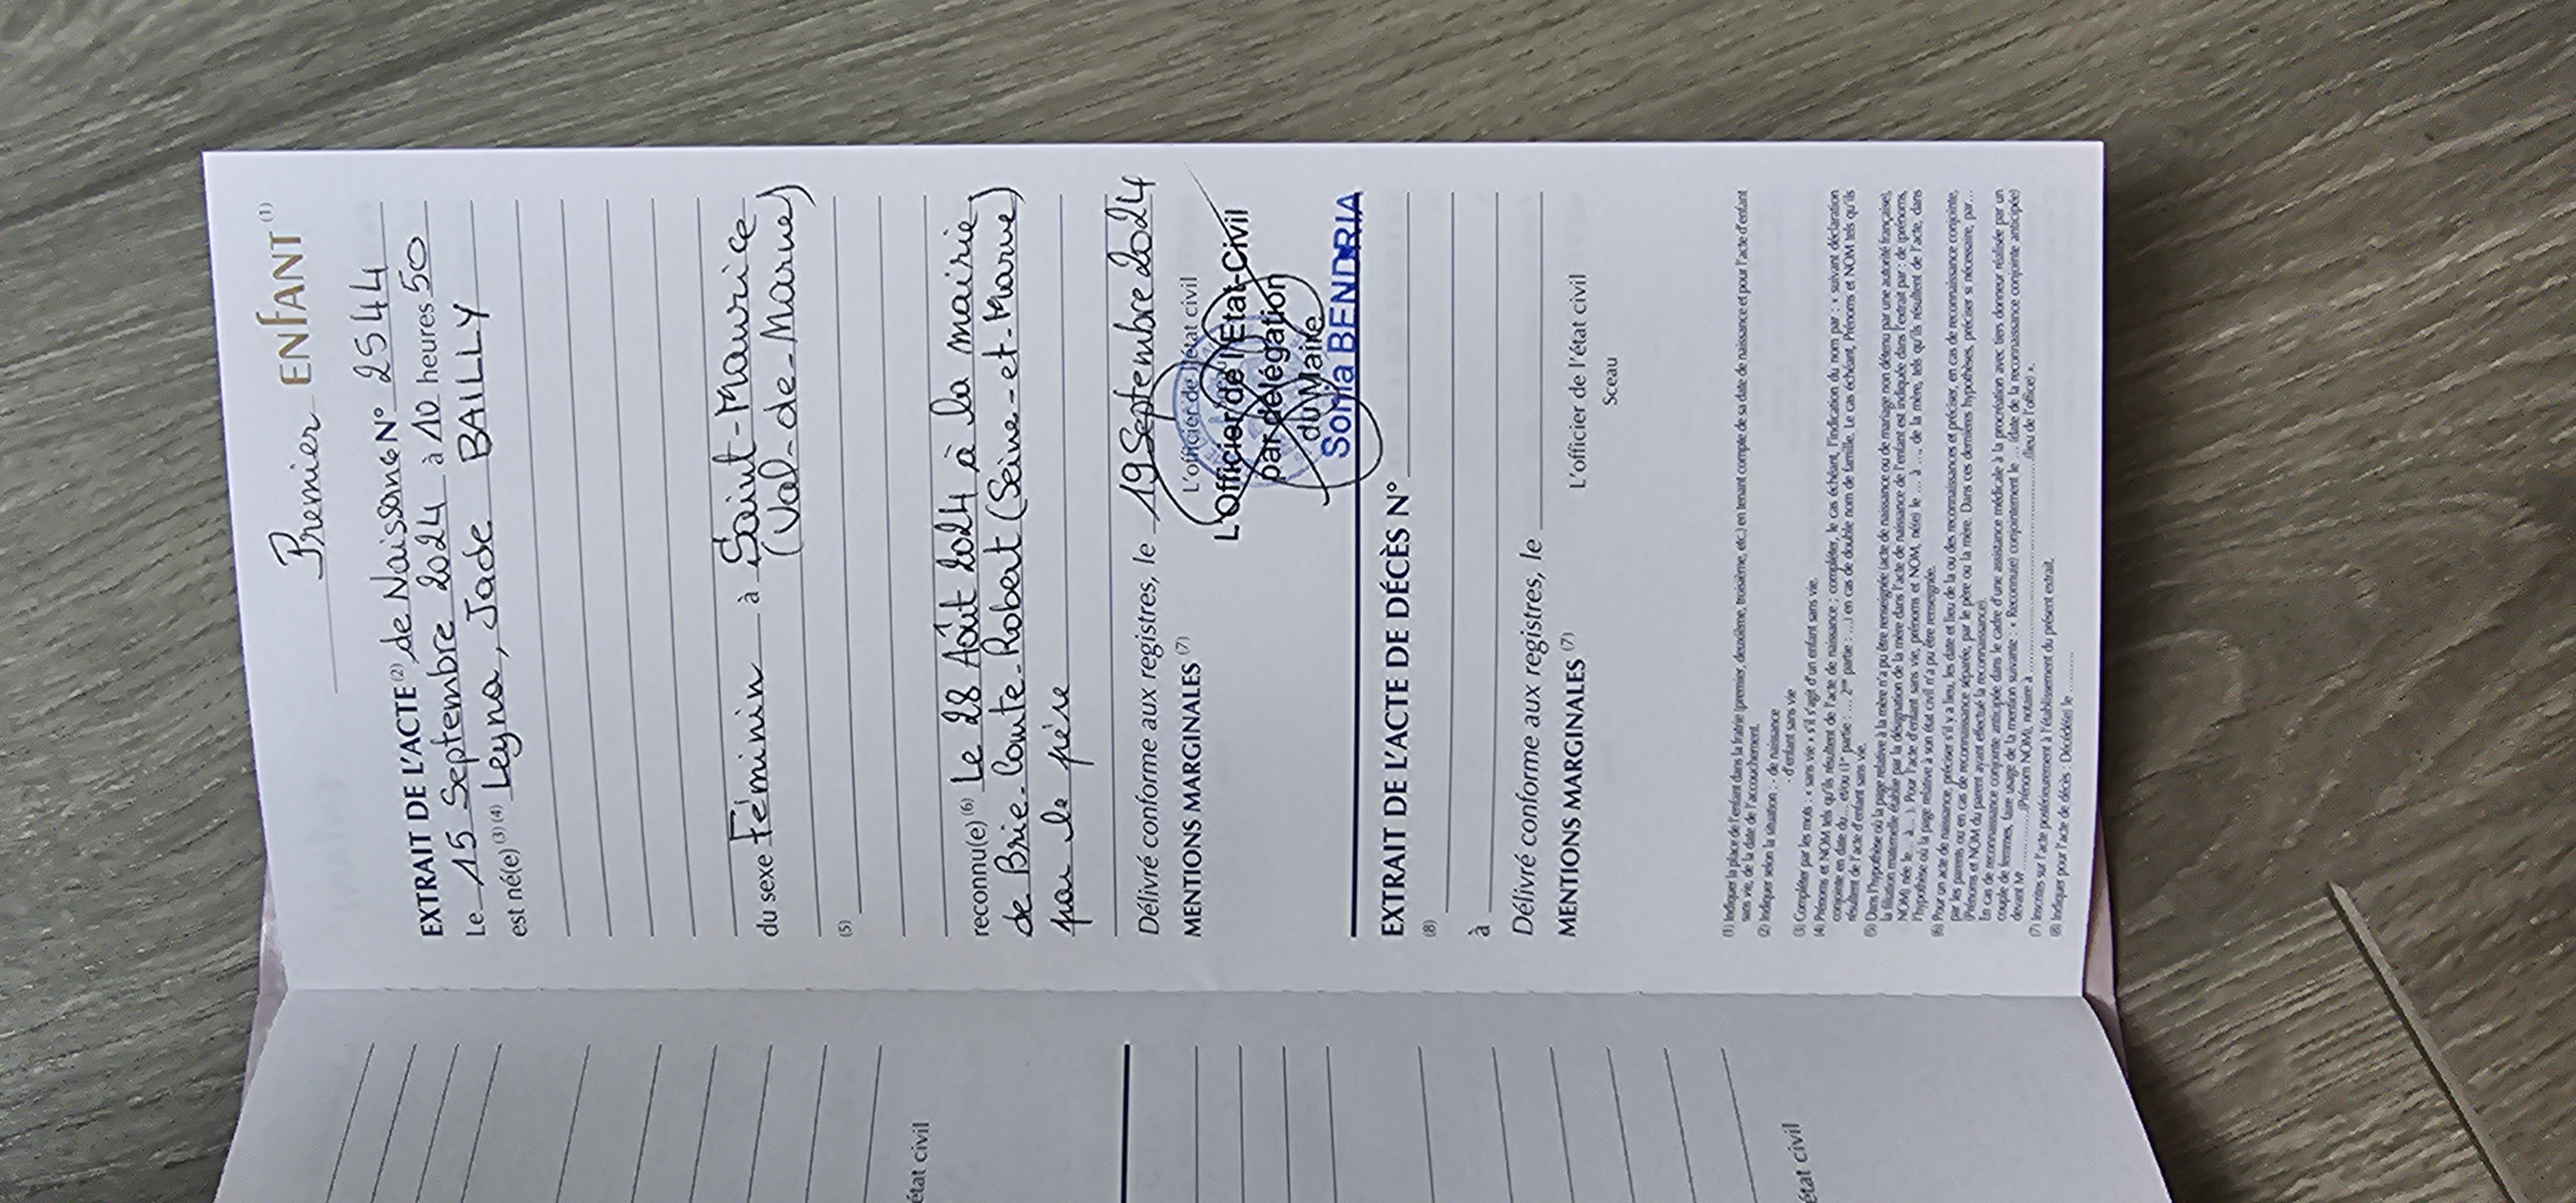 Premier ENFANT (1)
EXTRAIT DE L'ACTE (2) de Naissance N° 2544
Le 15 Septembre 2024 à 10 heures 50
est né(e) (3) (4) Leyna, Jade BAILLY
du sexe Féminin à Saint-Maurice
(Val-de-Marne)
(5)
reconnu(e) (6) Le 28 Août 2024 à la mairie
de Brie-Comte-Robert (Seine-et-Marne)
par le père
Délivré conforme aux registres, le 19 Septembre 2024
MENTIONS MARGINALES (7) L'officier de l'état civil
L'Officier de l'Etat-Civil
par délégation
du Maire
Sonia BENDRIA
EXTRAIT DE L'ACTE DE DÉCÈS N°
(8)
à
Délivré conforme aux registres, le
MENTIONS MARGINALES (7) L'officier de l'état civil
Sceau
(1) Indiquer la place de l'enfant dans la fratrie (premier, deuxième, troisième, etc.) en tenant compte de sa date de naissance et pour l'acte d'enfant
sans vie, de la date de l'accouchement.
(2) Indiquer selon la situation : - de naissance
- d'enfant sans vie
(3) Compléter par les mots : « sans vie » s'il s'agit d'un enfant sans vie.
(4) Prénoms et NOM tels qu'ils résultent de l'acte de naissance ; compléter, le cas échéant, l'indication du nom par : « suivant déclaration
conjointe en date du... et/ou (1re partie : ... 2nde partie : ...) en cas de double nom de famille. Le cas échéant, Prénoms et NOM tels qu'ils
résultent de l'acte d'enfant sans vie.
(5) Dans l'hypothèse où la page relative à la mère n'a pu être renseignée (acte de naissance ou de mariage non détenu par une autorité française),
la filiation maternelle établie par la désignation de la mère dans l'acte de naissance de l'enfant est indiquée dans l'extrait par : de (prénoms,
NOM) née le ... à ... ). Pour l'acte d'enfant sans vie, prénoms et NOM, né(e) le ... à ..., de la mère, tels qu'ils résultent de l'acte, dans
l'hypothèse où la page relative à son état civil n'a pu être renseignée.
(6) Pour un acte de naissance, préciser s'il y a lieu, les date et lieu de la ou des reconnaissances et préciser, en cas de reconnaissance conjointe,
par les parents ou en cas de reconnaissance séparée, par le père ou la mère. Dans ces dernières hypothèses, préciser si nécessaire, par...
(Prénoms et NOM du parent ayant effectué la reconnaissance).
En cas de reconnaissance conjointe anticipée dans le cadre d'une assistance médicale à la procréation avec tiers donneur réalisée par un
couple de femmes, faire usage de la mention suivante : « Reconnu(e) conjointement le ... (date de la reconnaissance conjointe anticipée)
devant Me ............ (Prénom NOM), notaire à ............ (lieu de l'office) ».
(7) Inscrites sur l'acte postérieurement à l'établissement du présent extrait.
(8) Indiquer pour l'acte de décès : Décédé(e) le ............
état civil
état civil